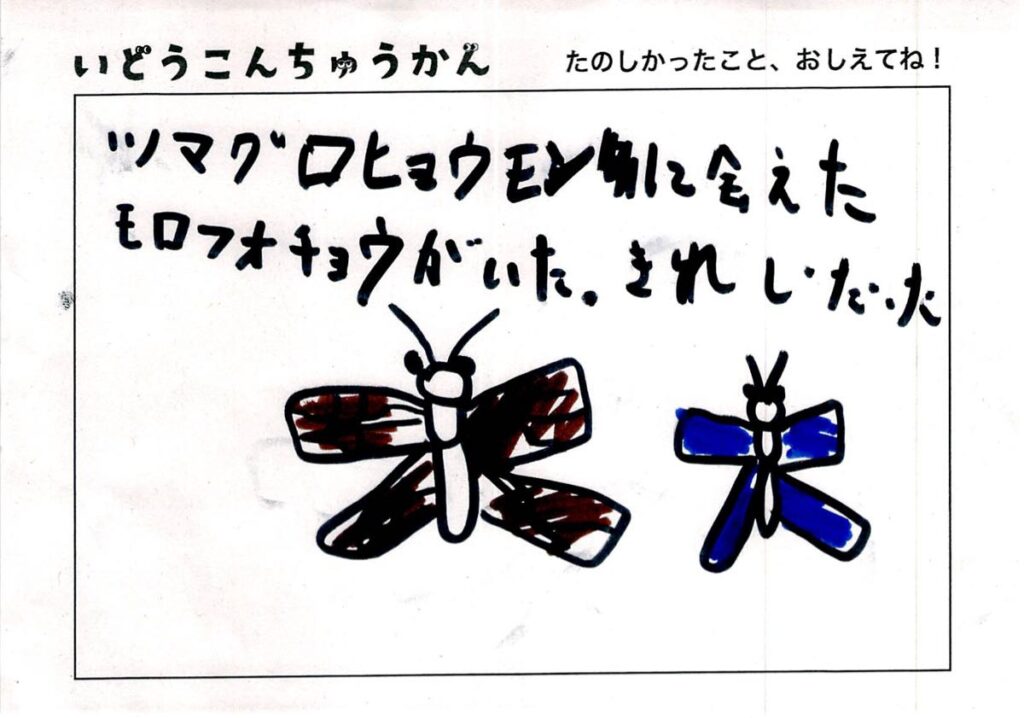 いどうこんちゅうかん
たのしかったこと、おしえてね!
ツマグロヒョウモンに会えた
モロフォチョウがいた。きれいだった